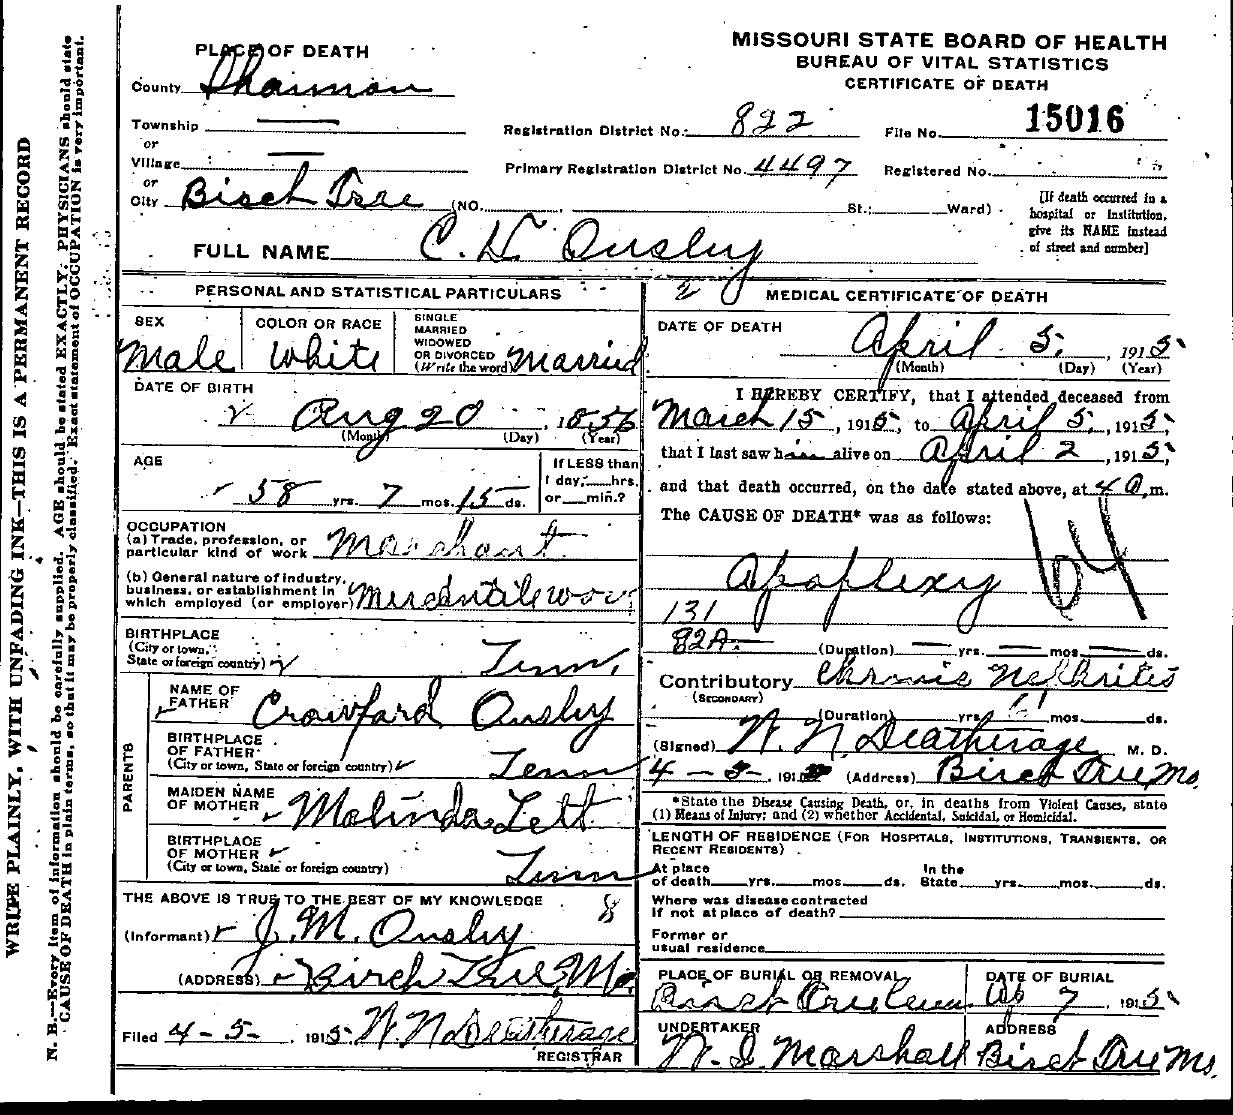 MISSOURI STATE BOARD OF HEALTH
BUREAU OF VITAL STATISTICS
CERTIFICATE OF DEATH
PLACE OF DEATH
County Shannon
Township
or
Village
or
City Birch Tree (NO. St.; Ward)
Registration District No. 822 File No. 15016
Primary Registration District No. 4497 Registered No.
[If death occurred in a
hospital or institution,
give its NAME instead
of street and number]
FULL NAME C. H. Ousley
PERSONAL AND STATISTICAL PARTICULARS
SEX
Male
COLOR OR RACE
White
SINGLE
MARRIED
WIDOWED
OR DIVORCED
(Write the word) Married
DATE OF BIRTH
Aug 20 1856
(Month) (Day) (Year)
AGE
58 yrs. 7 mos. 15 ds.
If LESS than
1 day, hrs.
or min.?
OCCUPATION
(a) Trade, profession, or
particular kind of work Merchant
(b) General nature of industry,
business, or establishment in
which employed (or employer) Mercantile
BIRTHPLACE
(City or town,
State or foreign country) Tenn.
PARENTS
NAME OF
FATHER Crawford Ousley
BIRTHPLACE
OF FATHER
(City or town, State or foreign country) Tenn
MAIDEN NAME
OF MOTHER Malinda Lett
BIRTHPLACE
OF MOTHER
(City or town, State or foreign country) Tenn
THE ABOVE IS TRUE TO THE BEST OF MY KNOWLEDGE 8
(Informant) J. M. Ousley
(ADDRESS) Birch Tree Mo.
Filed 4-5-, 1915 W. N. Deatherage
REGISTRAR
2 MEDICAL CERTIFICATE OF DEATH
DATE OF DEATH
April 5, 1915
(Month) (Day) (Year)
I HEREBY CERTIFY, that I attended deceased from
March 15, 1915, to April 5, 1915,
that I last saw him alive on April 2, 1915,
and that death occurred, on the date stated above, at 4 a.m.
The CAUSE OF DEATH* was as follows:
Apoplexy 64
131
82A (Duration) yrs. mos. ds.
Contributory Chronic Nephritis
(SECONDARY)
(Duration) yrs. mos. ds.
(Signed) W. N. Deatherage M. D.
4-5-, 191 (Address) Birch Tree Mo.
*State the Disease Causing Death, or, in deaths from Violent Causes, state
(1) Means of Injury; and (2) whether Accidental, Suicidal, or Homicidal.
LENGTH OF RESIDENCE (FOR HOSPITALS, INSTITUTIONS, TRANSIENTS, OR
RECENT RESIDENTS)
At place In the
of death yrs. mos. ds. State yrs. mos. ds.
Where was disease contracted
If not at place of death?
Former or
usual residence
PLACE OF BURIAL OR REMOVAL
Birch Tree
DATE OF BURIAL
Ap 7, 1915
UNDERTAKER
W. I. Marshall
ADDRESS
Birch Tree Mo.
WRITE PLAINLY, WITH UNFADING INK—THIS IS A PERMANENT RECORD
N. B.—Every item of information should be carefully supplied. AGE should be stated EXACTLY. PHYSICIANS should state
CAUSE OF DEATH in plain terms, so that it may be properly classified. Exact statement of OCCUPATION is very important.